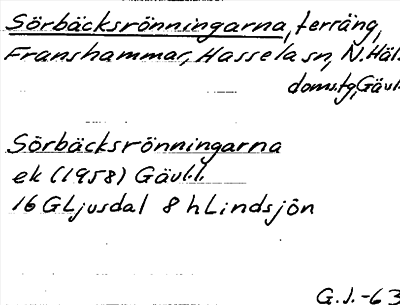 Sörbäcksrönningarna, terräng,
Franshammar, Hassela sn, N. Häl.
doms.tg, Gävl.
Sörbäcksrönningarna
ek (1958) Gävl.l.
16 G Ljusdal 8 h Lindsjön
G.J.-63